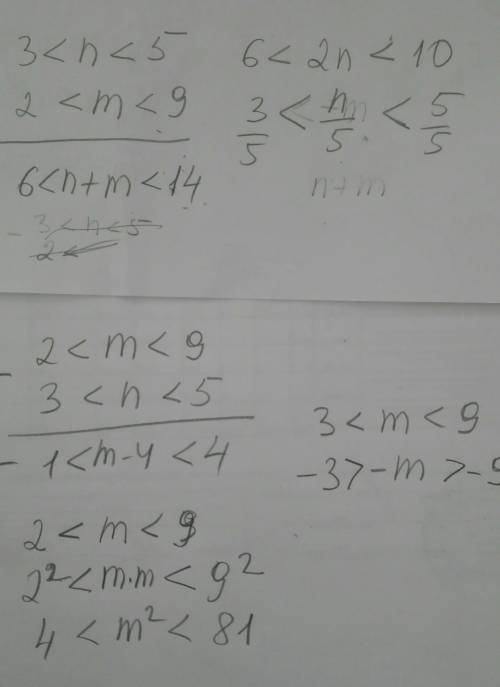 3 < n < 5
2 < m < 9
6 < n + m < 14
- 3 < n < 5
2 <
6 < 2n < 10
3/5 < n/5 < 5/5
n + m
- 2 < m < 9
3 < n < 5
- 1 < m - 4 < 4
3 < m < 9
-3 > -m > -9
2 < m < 9
2² < m·m < 9²
4 < m² < 81